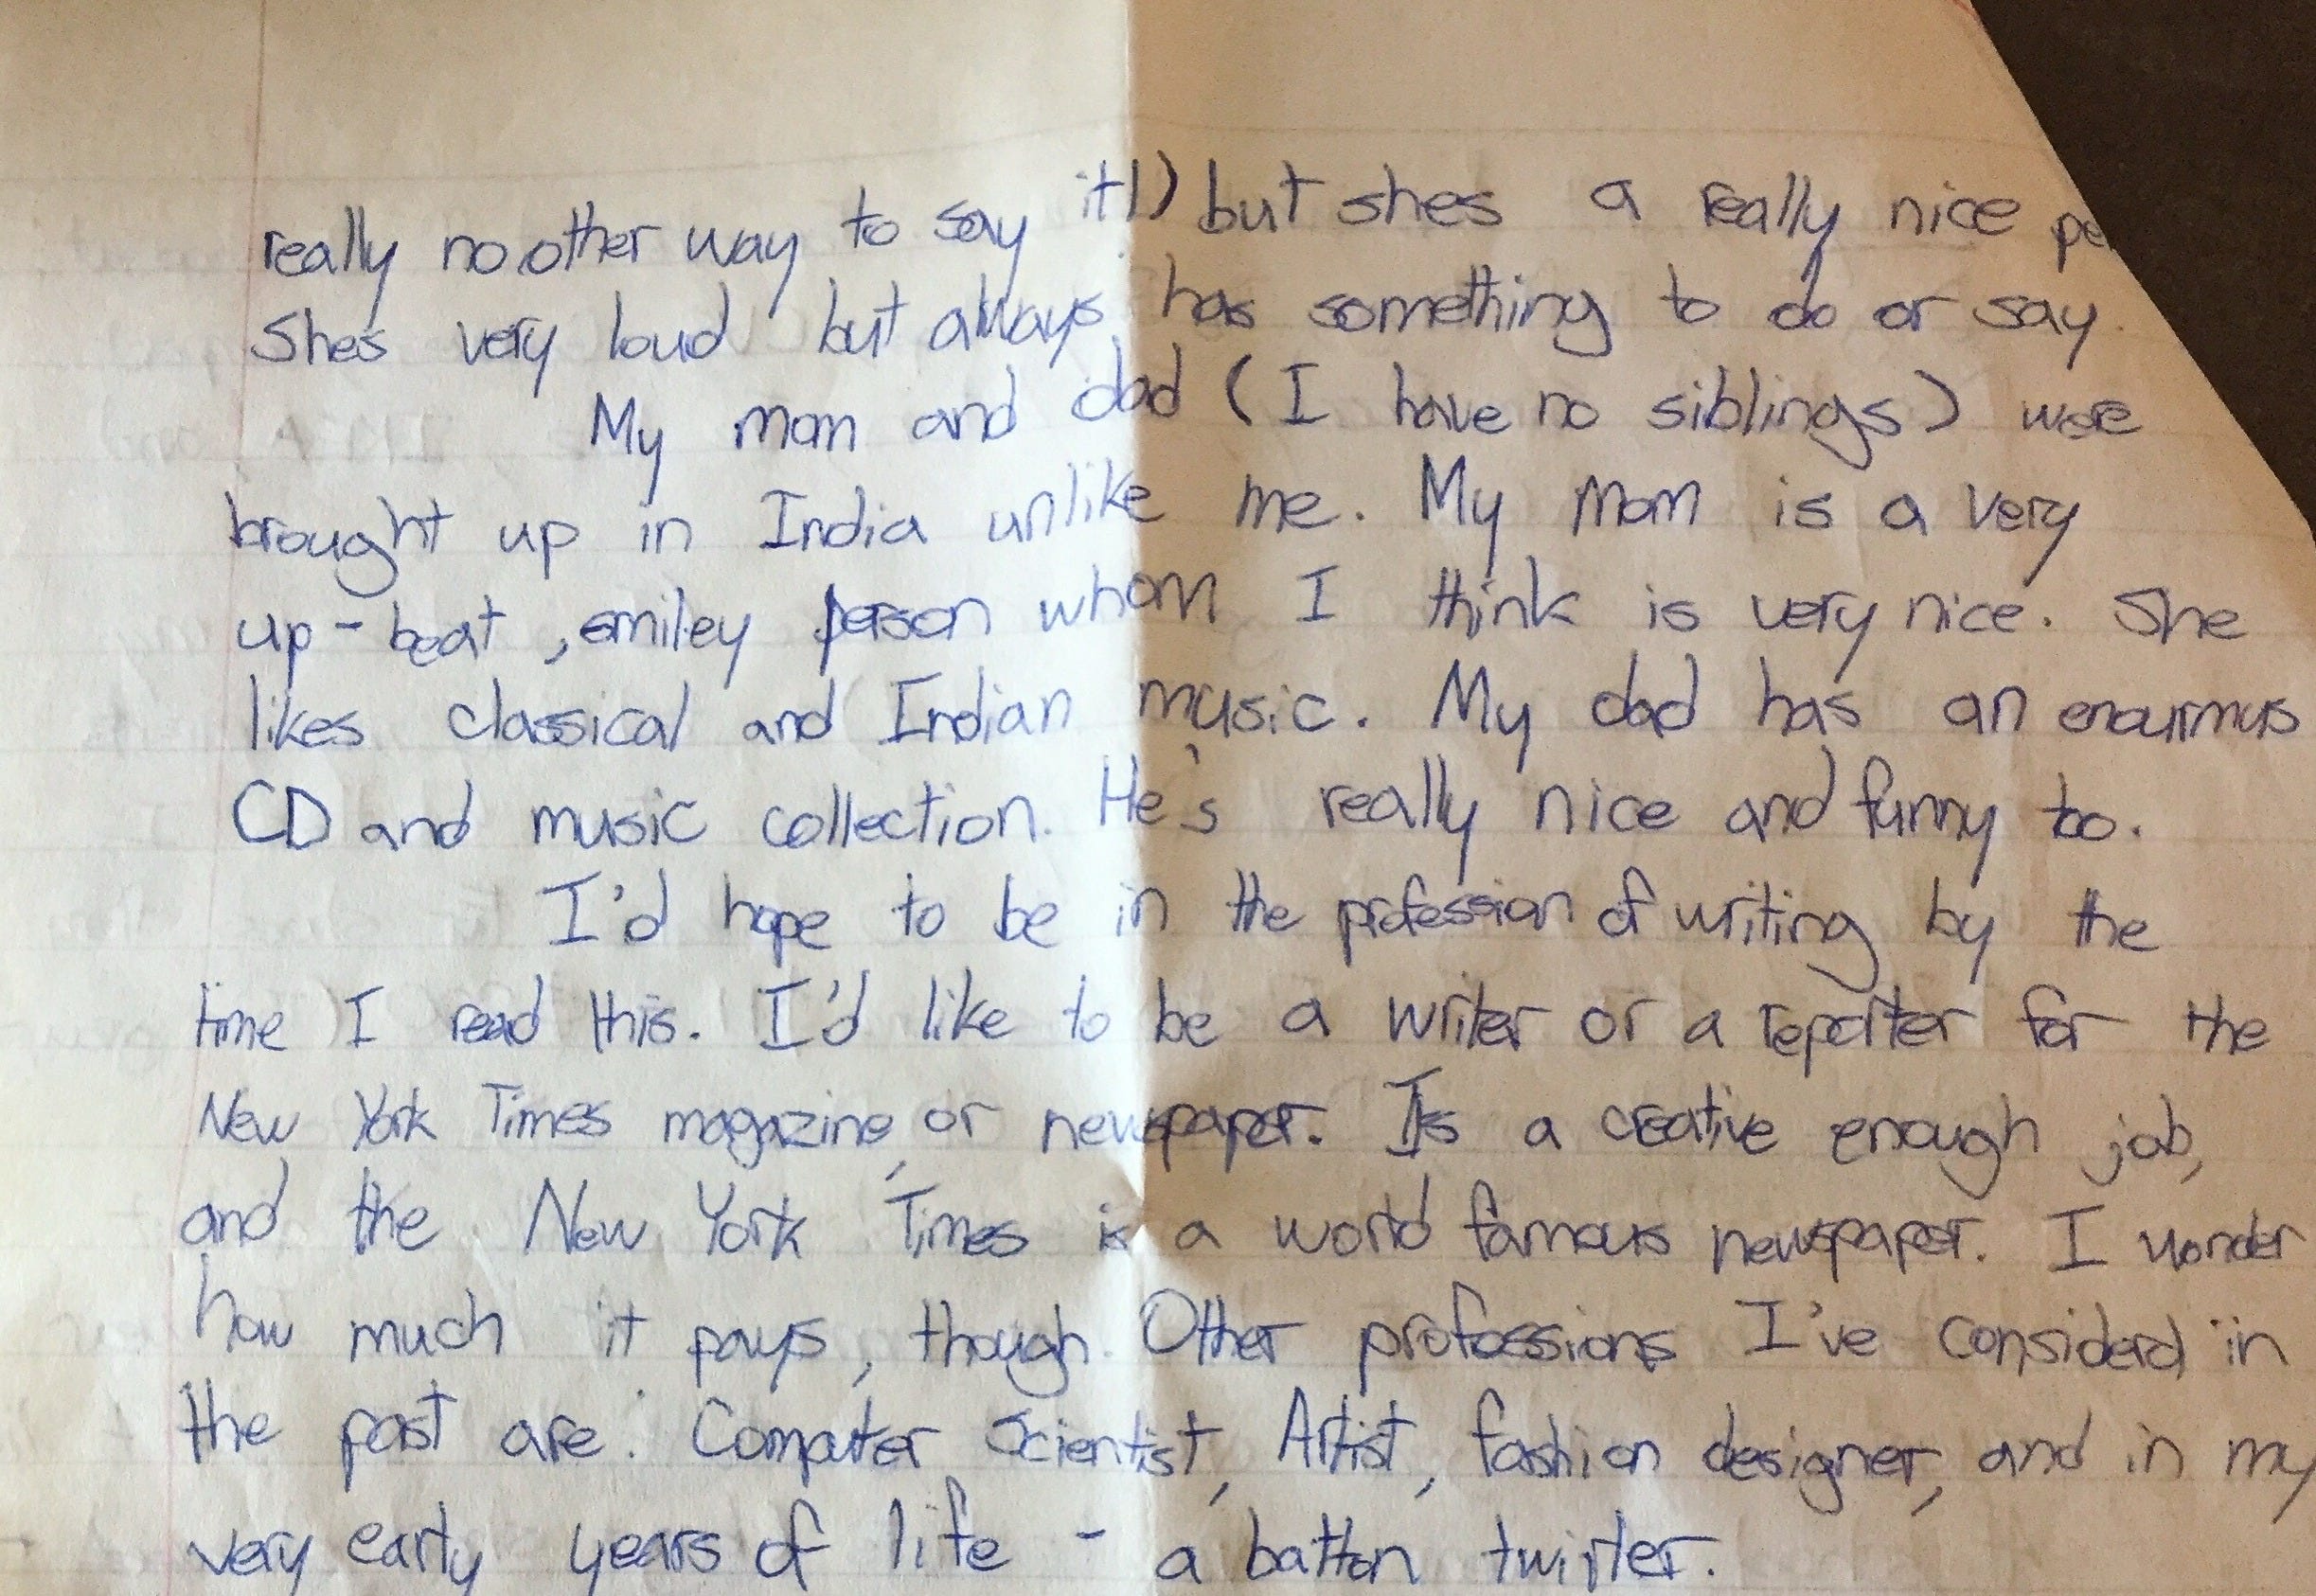 really no other way to say it!) but shes a really nice pe
Shes very loud but always has something to do or say.
My mom and dad (I have no siblings) were
brought up in India unlike me. My mom is a very
up-beat, smiley person whom I think is very nice. She
likes classical and Indian music. My dad has an enourmus
CD and music collection. He's really nice and funny too.
I'd hope to be in the profession of writing by the
time I read this. I'd like to be a writer or a reporter for the
New York Times magazine, or newspaper. Its a creative enough job,
and the New York Times is a world famous newspaper. I wonder
how much it pays, though. Other professions I've considerd in
the past are: Computer Scientist, Artist, fashion designer, and in my
very early years of life - a batton twirler.